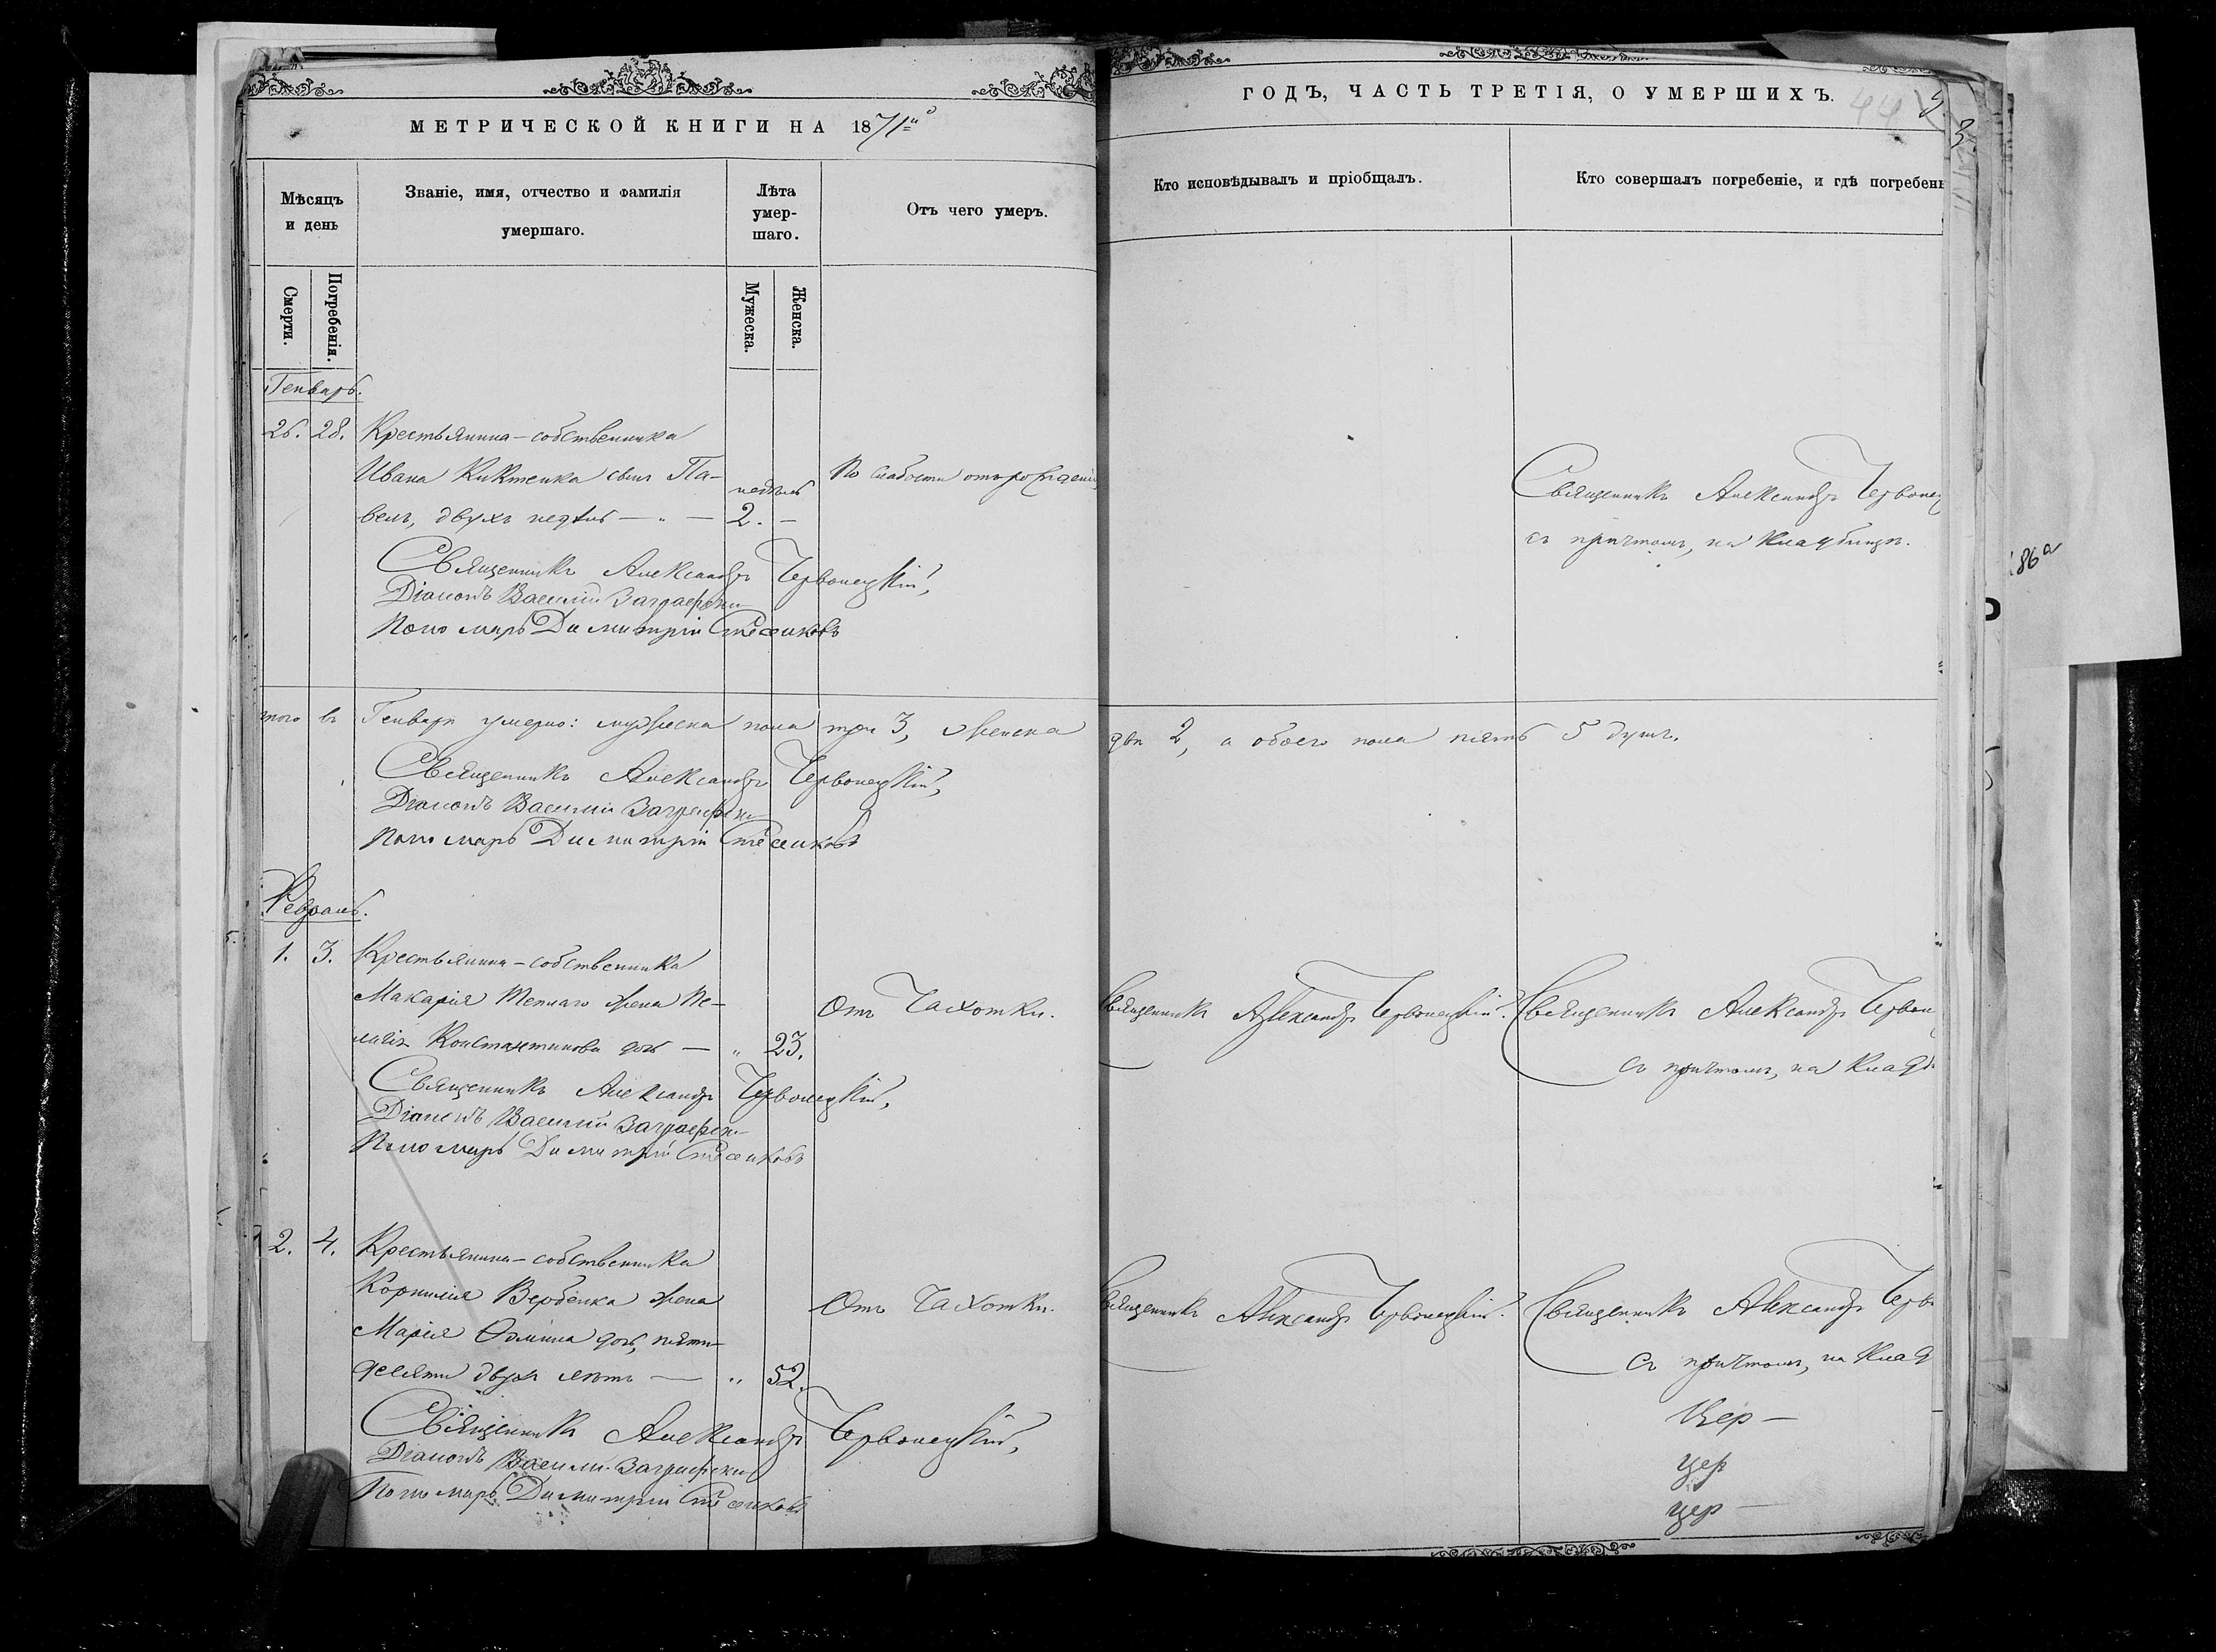 МЕТРИЧЕСКОЙ КНИГИ НА 1871й
Мѣсяцъ и день
Смерти.
Погребенія.
Званіе, имя, отчество и фамилія умершаго.
Лѣта умер-
шаго.
Мужеска.
Женска.
Отъ чего умеръ.
Генварь.
26. 28. Крестьянина-собственника
Ивана Киктенка сынъ Па-
недѣль
По слабости отъ рожденія
велъ, двухъ недѣль — „ — 2. —
Священникъ Александръ Червонецкій,
Діаконъ Василій
Пономарь Димитрій
Генварѣ умерло: мужеска пола три 3, женска
Священникъ Александръ Червонецкій,
Діаконъ Василій
Пономарь Димитрій
Февраль.
1. 3. Крестьянина-собственника
Макарія Теплаго жена Пе-
Отъ Чахотки.
лагія Константинова дочь — „ 23.
Священникъ Александръ Червонецкій,
Діаконъ Василій
Пономарь Димитрій
2. 4. Крестьянина-собственника
Корнилія Вербенка жена
Отъ Чахотки.
Марія Ѳомина дочь, пяти-
десяти двухъ лѣтъ — „ 52.
Священникъ Александръ Червонецкій,
Діаконъ Василій
Пономарь Димитрій
ГОДЪ, ЧАСТЬ ТРЕТІЯ, О УМЕРШИХЪ.
44
3.
Кто исповѣдывалъ и пріобщалъ.
Кто совершалъ погребеніе, и гдѣ погребены
Священникъ Александръ Червонец
съ причтомъ, на кладбищѣ.
двѣ 2, а обоего пола пять 5 душъ.
Священникъ Александръ Червонецкій.
Священникъ Александръ Червон
съ причтомъ, на клад
Священникъ Александръ Червонецкій.
Священникъ Александръ Черв
съ причтомъ, на клад
Цер —
цер
цер —
86а